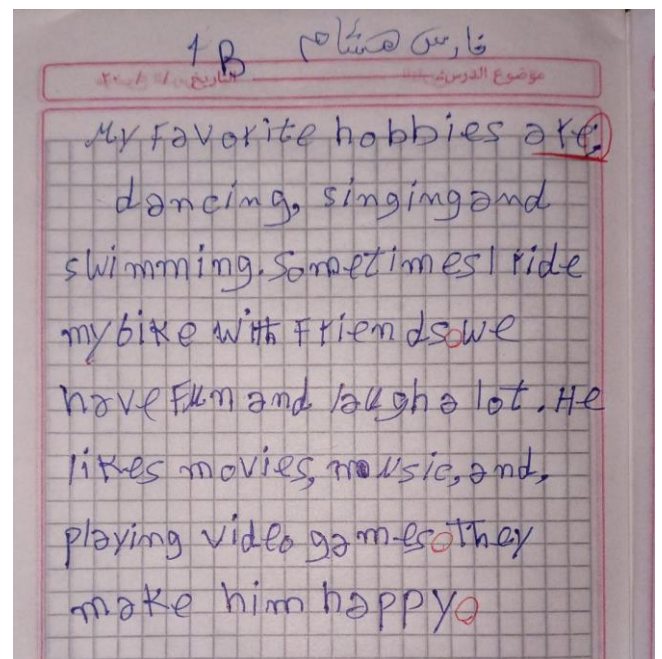 1B فارس هشام
موضوع الدرس: التاريخ / / ٢٠
My favorite hobbies are,
dancing, singing and
swimming. Sometimes I ride
my bike with Friends we
have Fun and laugh a lot. He
likes movies, music, and,
playing video games They
make him happy